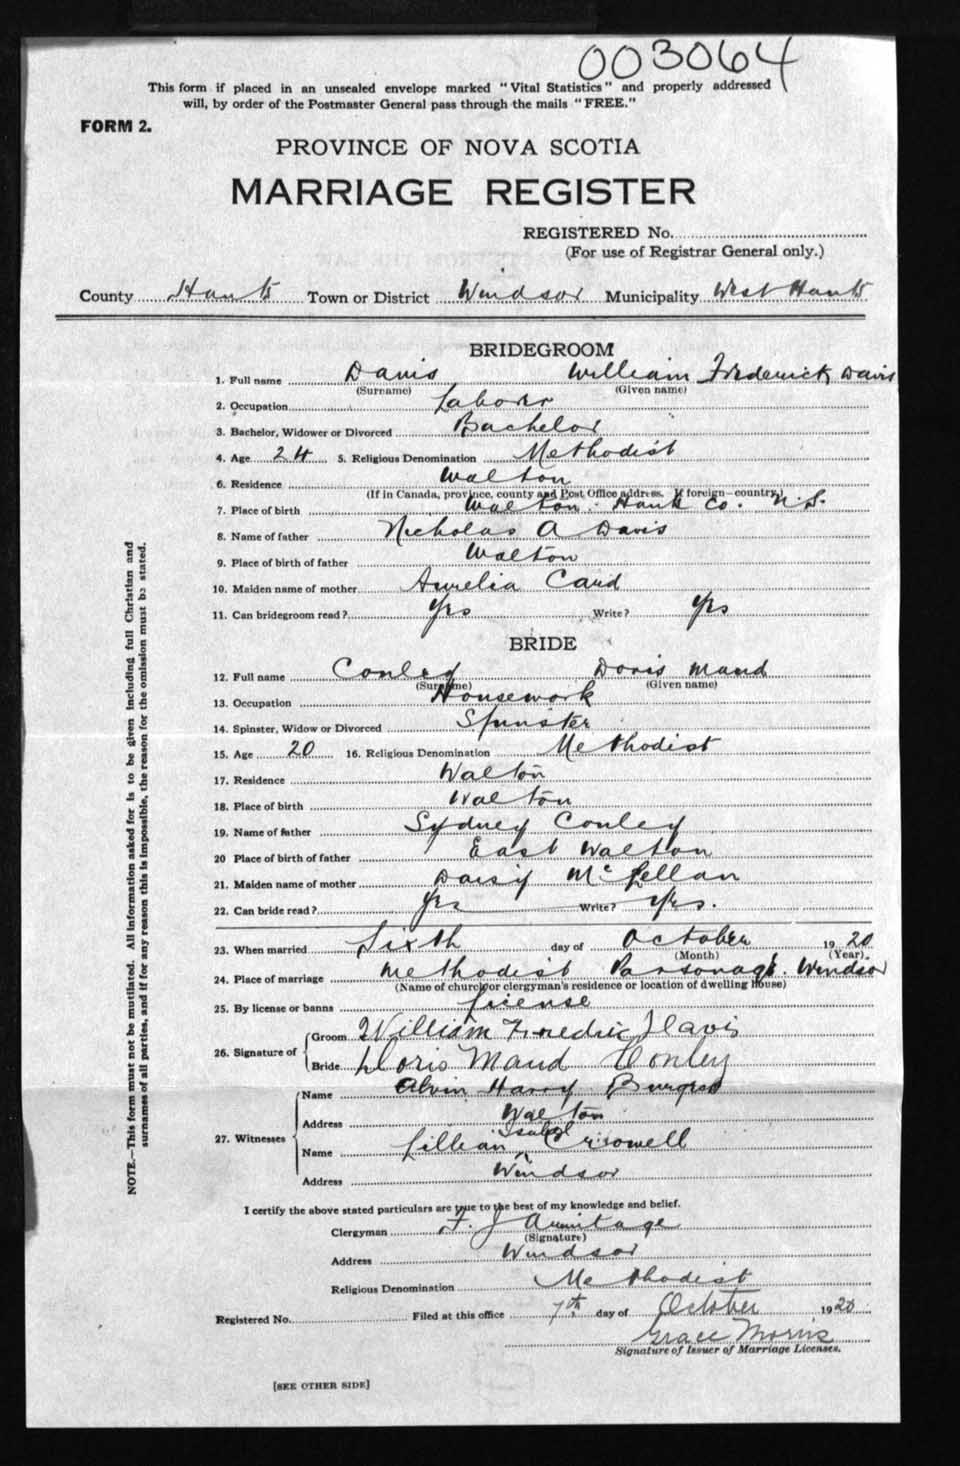 003064
This form if placed in an unsealed envelope marked "Vital Statistics" and properly addressed
will, by order of the Postmaster General pass through the mails "FREE."
FORM 2.
PROVINCE OF NOVA SCOTIA
MARRIAGE REGISTER
REGISTERED No.
(For use of Registrar General only.)
County Hants Town or District Windsor Municipality West Hants
BRIDEGROOM
1. Full name Davis William Frederick Davis
(Surname) (Given name)
2. Occupation Laborer
3. Bachelor, Widower or Divorced Bachelor
4. Age 24 5. Religious Denomination Methodist
6. Residence Walton
(If in Canada, province, county and Post Office address. If foreign—country)
7. Place of birth Walton. Hants Co. N.S.
8. Name of father Nicholas A Davis
9. Place of birth of father Walton
10. Maiden name of mother Aurelia Card
11. Can bridegroom read? Yes Write? Yes
BRIDE
12. Full name Conley Doris Maud
(Surname) (Given name)
13. Occupation Housework
14. Spinster, Widow or Divorced Spinster
15. Age 20 16. Religious Denomination Methodist
17. Residence Walton
18. Place of birth Walton
19. Name of father Sydney Conley
20 Place of birth of father East Walton
21. Maiden name of mother Daisy McLellan
22. Can bride read? Yes Write? Yes.
23. When married Sixth day of October 1920
(Month) (Year).
24. Place of marriage Methodist Parsonage. Windsor
(Name of church or clergyman's residence or location of dwelling house)
25. By license or banns license
26. Signature of Groom William Fredric Davis
Bride Doris Maud Conley
27. Witnesses
Name Alvin Harry Burgess
Address Walton
Isabel
Name Lillian Crowell
Address Windsor
I certify the above stated particulars are true to the best of my knowledge and belief.
Clergyman F. J Armitage
(Signature)
Address Windsor
Religious Denomination Methodist
Registered No. Filed at this office 7th day of October 1920
Grace Morris
Signature of Issuer of Marriage Licenses.
[SEE OTHER SIDE]
NOTE.—This form must not be mutilated. All information asked for is to be given including full Christian and
surnames of all parties, and if for any reason this is impossible, the reason for the omission must be stated.